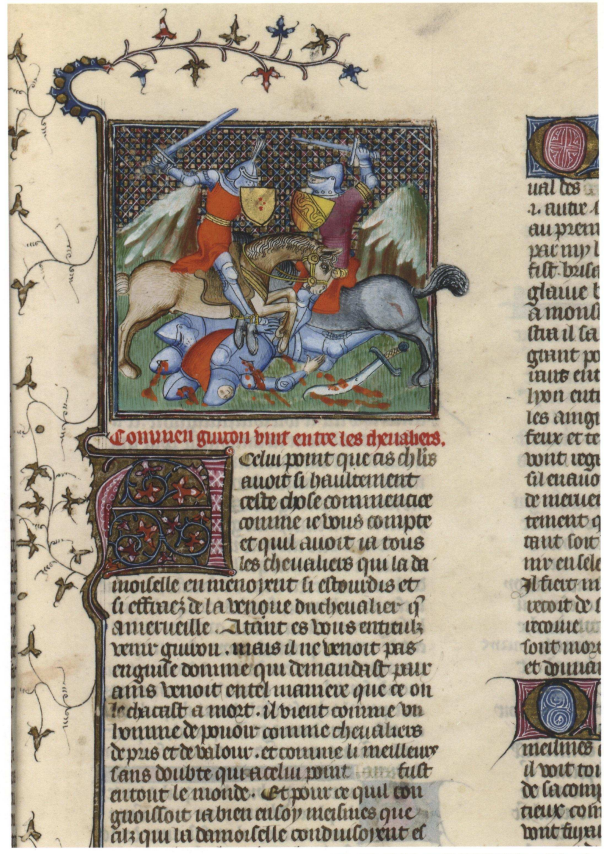 Comment guiron vint entre les chevaliers.
A Celui point que cis ch'lrs
avoit si haultement
ceste chose commencice
comme ie vous compte
et quil avoit ia tous
les chevaliers qui la da
moiselle en menoyent si estourdis et
si effraez de la venque du chevalier q'
a merveille. Atant es vous entreulz
venir guiron. mais il ne venoit pas
en guise domme qui demandast paix
ains venoit en tel maniere que ce on
le chacast a mort. il vient comme un
homme de povoir comme chevaliers
de pris et de valour. et comme li meilleurs
sans doubte qui a celui point fust
en tout le monde. Et pour ce quil con
gnoissoit ia bien en soy meismes que
cilz qui la damoiselle conduisoyent es
val les
autre
au prem
par my l
fist brise
glaive
a monst
il sa
grant po
eut
lyon
les
feux et te
vont
sil
de
tement q
tant soit

Il fiert
recoit de

sont mors
et
meismes
il voit tou
de sa comp
cieux com
vont